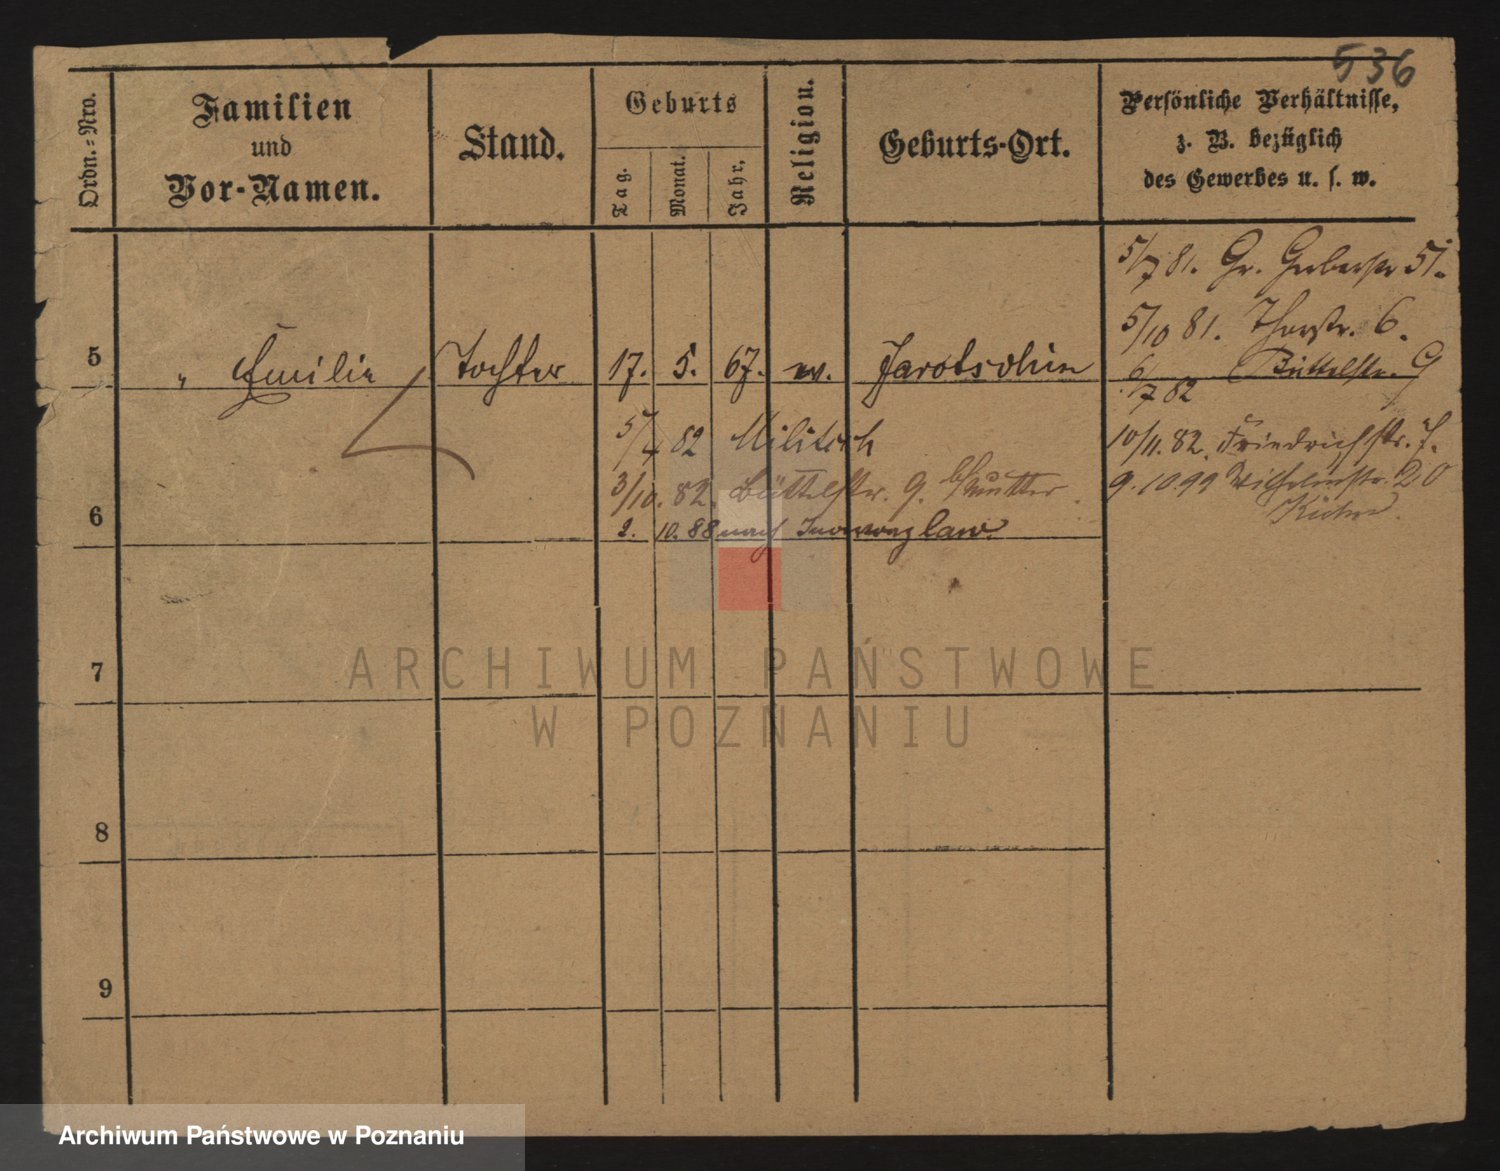 536
Ordn.=Nro.
Familien
und
Vor-Namen.
Stand.
Geburts
Tag.
Monat.
Jahr.
Religion.
Geburts-Ort.
Persönliche Verhältnisse,
z. B. bezüglich
des Gewerbes u. s. w.
5/7 81. Gr. Gerberstr 51.
5/10 81. Thorstr. 6.
5 " Emilie Tochter 17. 5. 67. Jarotschin
6/7 82 Büttelstr. 9
5/4 82 Militsch
10/11. 82. Friedrichstr.
3/10. 82. Büttelstr. 9. b/Mutter.
9. 10 99 Wilhelmstr. 20
6
2. 10. 88 nach Inowrazlaw.
7
8
9
ARCHIWUM PAŃSTWOWE
W POZNANIU
Archiwum Państwowe w Poznaniu